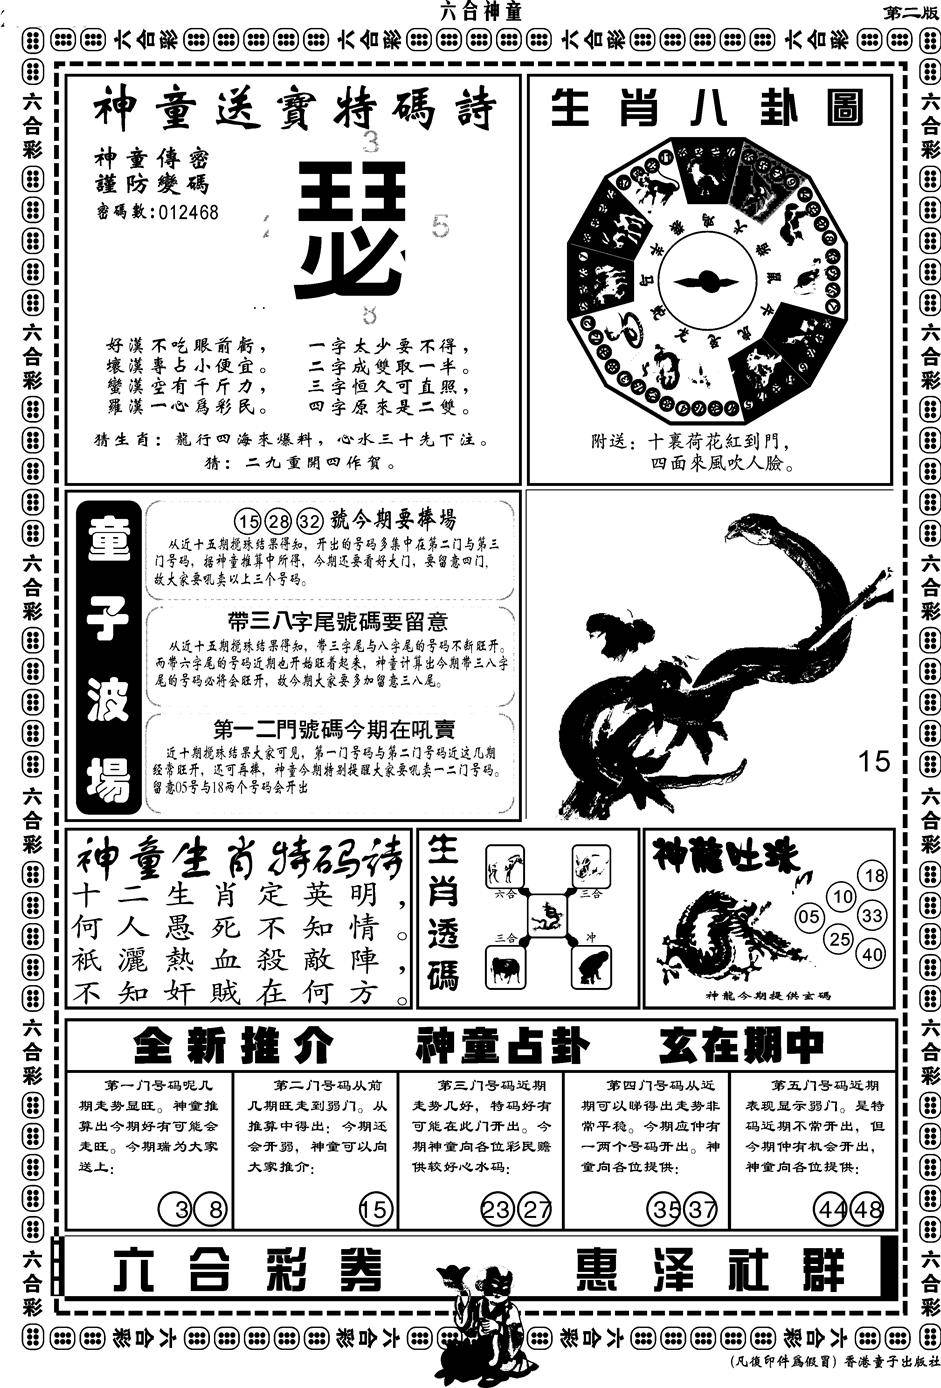 六合神童
第二版
神童送寶特碼詩
神童傳密
謹防變碼
密碼數:012468
3
瑟
5
8
好漢不吃眼前虧，
壞漢專占小便宜。
蠻漢空有千斤力，
羅漢一心爲彩民。
一字太少要不得，
二字成雙取一半。
三字恒久可直照，
四字原來是二雙。
猜生肖：龍行四海來爆料，心水三十先下注。
猜：二九重開四作賀。
生肖八卦圖
附送：十裏荷花紅到門，
四面來風吹人臉。
童子波場
15 28 32 號今期要棒場
从近十五期搅珠结果得知，开出的号码多集中在第二门与第三
门号码，据神童推算中所得，今期还要看好大门，要留意四门，
故大家要吼卖以上三个号码。
帶三八字尾號碼要留意
从近十五期搅珠结果得知，带三字尾与八字尾的号码不断旺开。
而带六字尾的号码近期也开始旺看起来，神童计算出今期带三八字
尾的号码必将会旺开，故今期大家要多加留意三八尾。
第一二門號碼今期在吼賣
近十期搅珠结果大家可见，第一门号码与第二门号码近这几期
经常旺开，还可再捧，神童今期特别提醒大家要吼卖一二门号码。
留意05号与18两个号码会开出
15
神童生肖特码诗
十二生肖定英明，
何人愚死不知情。
衹灑熱血殺敵陣，
不知奸賊在何方。
生肖透碼
六合
三合
三合
冲
神龍吐珠
18
10
05
33
25
40
神龍今期提供玄碼
全新推介 神童占卦 玄在期中
第一门号码呢几
期走势显旺。神童推
算出今期好有可能会
走旺。今期瑞为大家
送上：
3 8
第二门号码从前
几期旺走到弱门。从
推算中得出：今期还
会开弱，神童可以向
大家推介：
15
第三门号码近期
走势几好，特码好有
可能在此门开出。今
期神童向各位彩民赐
供较好心水码：
23 27
第四门号码从近
期可以睇得出走势非
常平稳。今期应仲有
一两个号码开出。神
童向各位提供：
35 37
第五门号码近期
表现显示弱门。是特
码近期不常开出，但
今期仲有机会开出，
神童向各位提供：
44 48
六合彩券 惠泽社群
(凡復印件爲假冒) 香港童子出版社